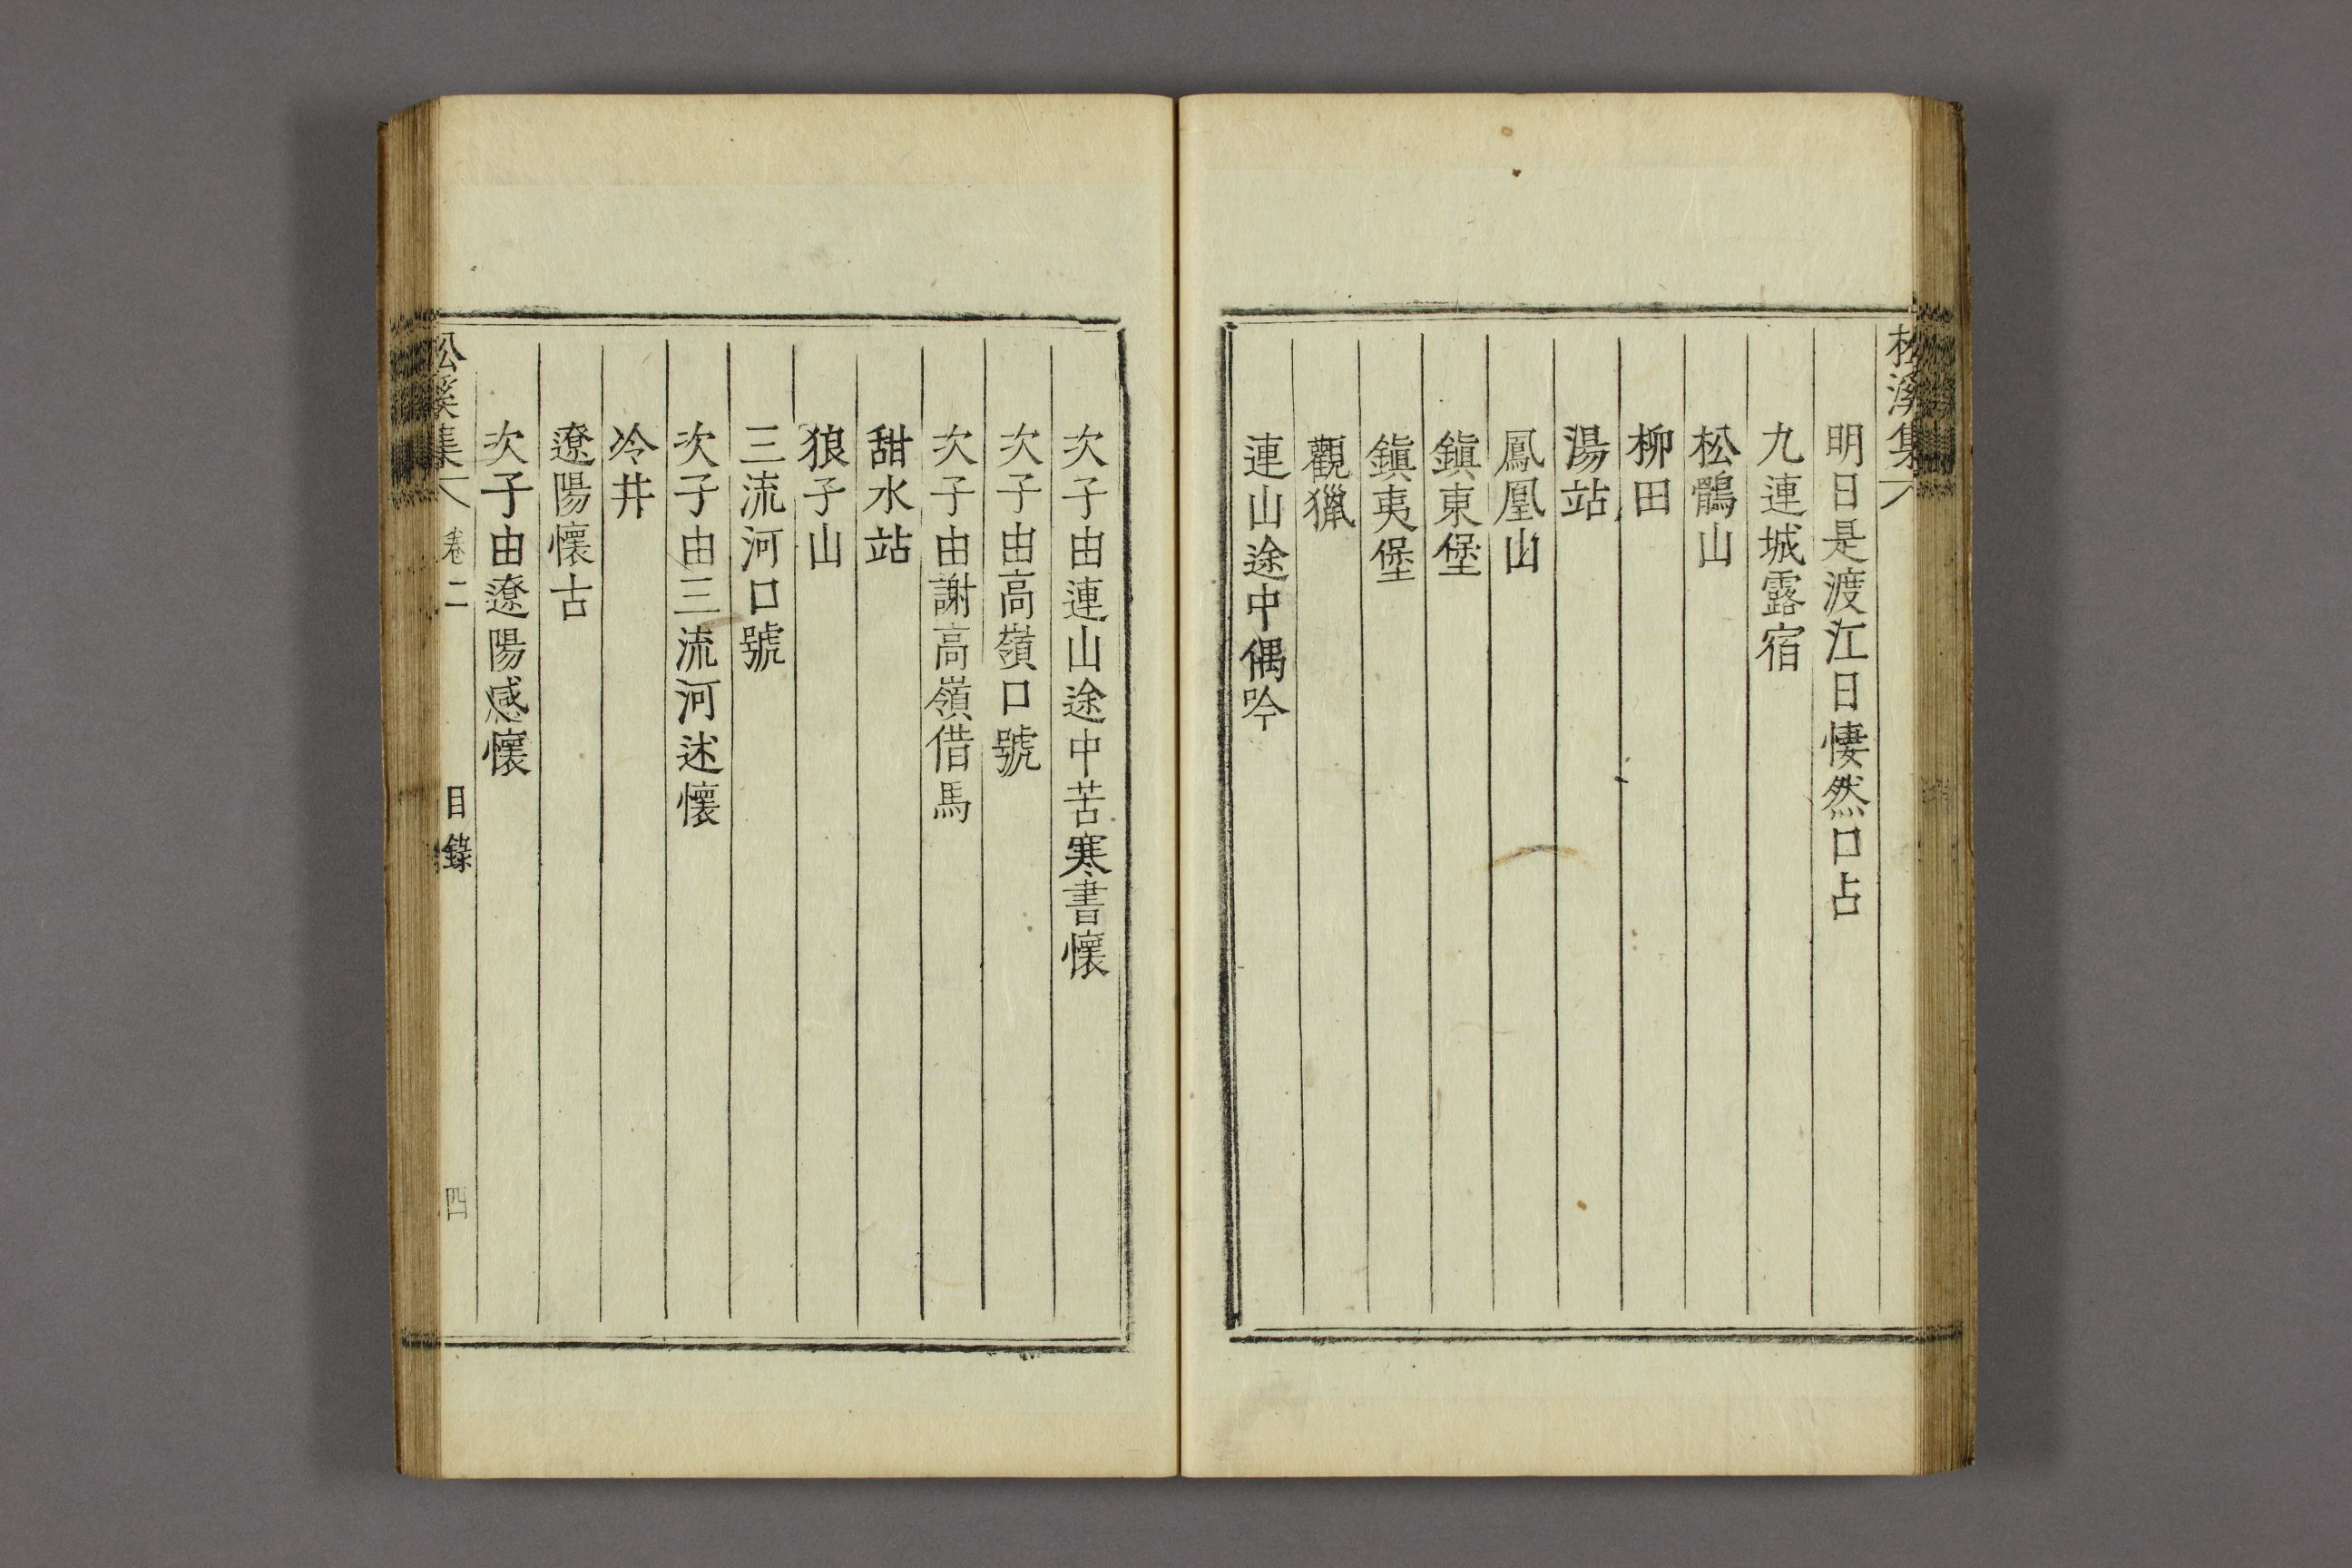 松溪集
明日是渡江日悽然口占
九連城露宿
松鶻山
柳田
湯站
鳳凰山
鎭東堡
鎭夷堡
觀獵
連山途中偶吟
次子由連山途中苦寒書懷
次子由高嶺口號
次子由謝高嶺借馬
甜水站
狼子山
三流河口號
次子由三流河述懷
冷井
遼陽懷古
次子由遼陽感懷
松溪集 卷二 目錄 四